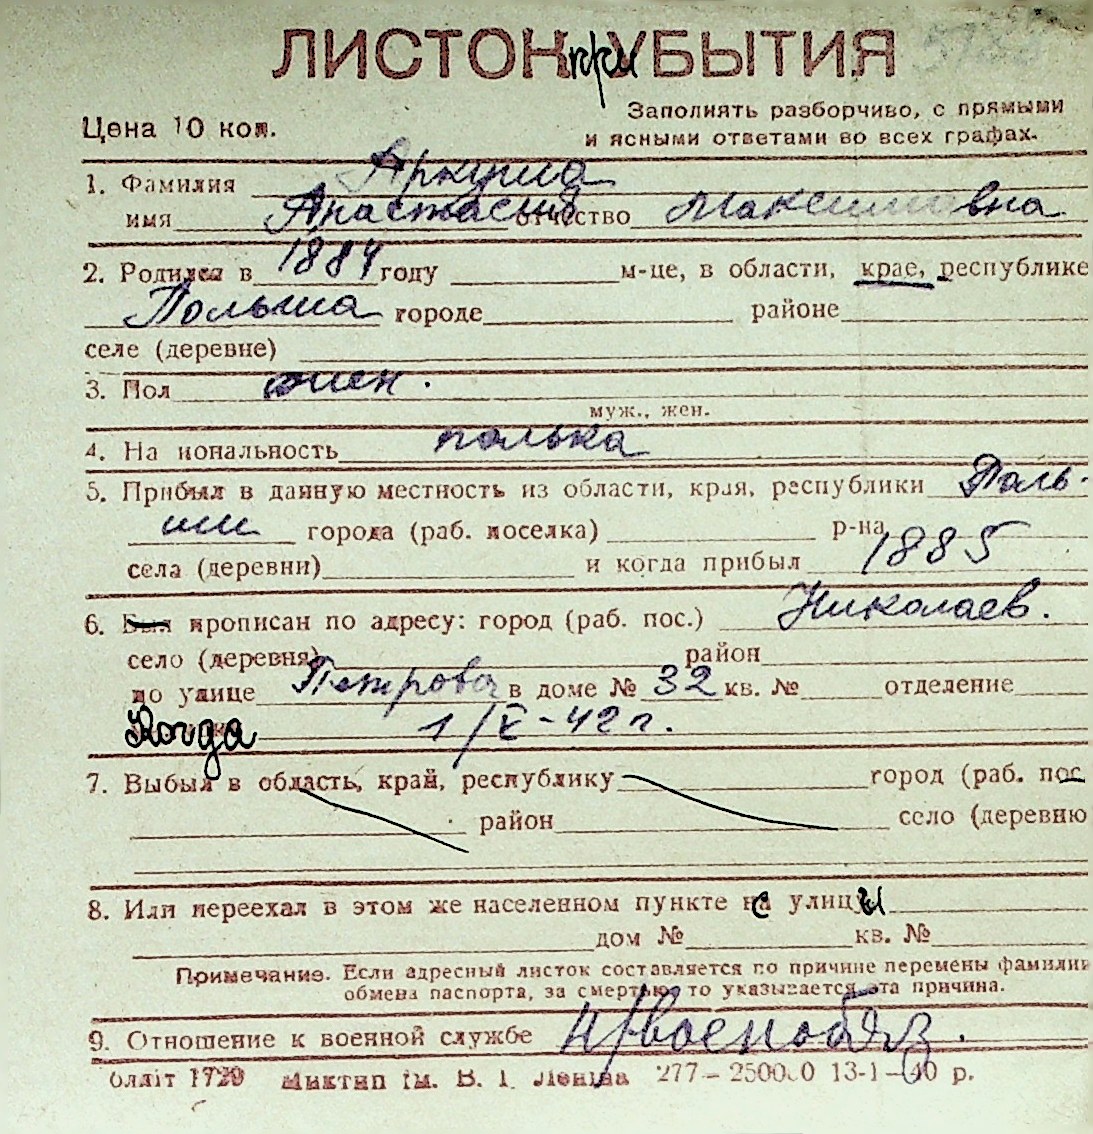 ЛИСТОК при УБЫТИЯ
Цена 10 коп.
Заполнять разборчиво, с прямыми
и ясными ответами во всех графах.
1. Фамилия Аркуша
имя Анастасия отчество Максимовна
2. Родился в 1884 году м-це, в области, крае, республике
Польша городе районе
селе (деревне)
3. Пол жен.
муж., жен.
4. На иональность полька
5. Прибыл в данную местность из области, края, республики Поль-
ши города (раб. поселка) р-на
села (деревни) и когда прибыл 1885
6. Был прописан по адресу: город (раб. пос.) Николаев.
село (деревня) район
по улице Петрова в доме № 32 кв. № отделение
Когда 1/X-42 г.
7. Выбыл в область, край, республику город (раб. пос
район село (деревню
8. Или переехал в этом же населенном пункте с улицы
дом № кв. №
Примечание. Если адресный листок составляется по причине перемены фамилии
обмена паспорта, за смертью, то указывается эта причина.
9. Отношение к военной службе н/военобяз.
ім. В. І. Леніна 277–250000 13-1–40 р.